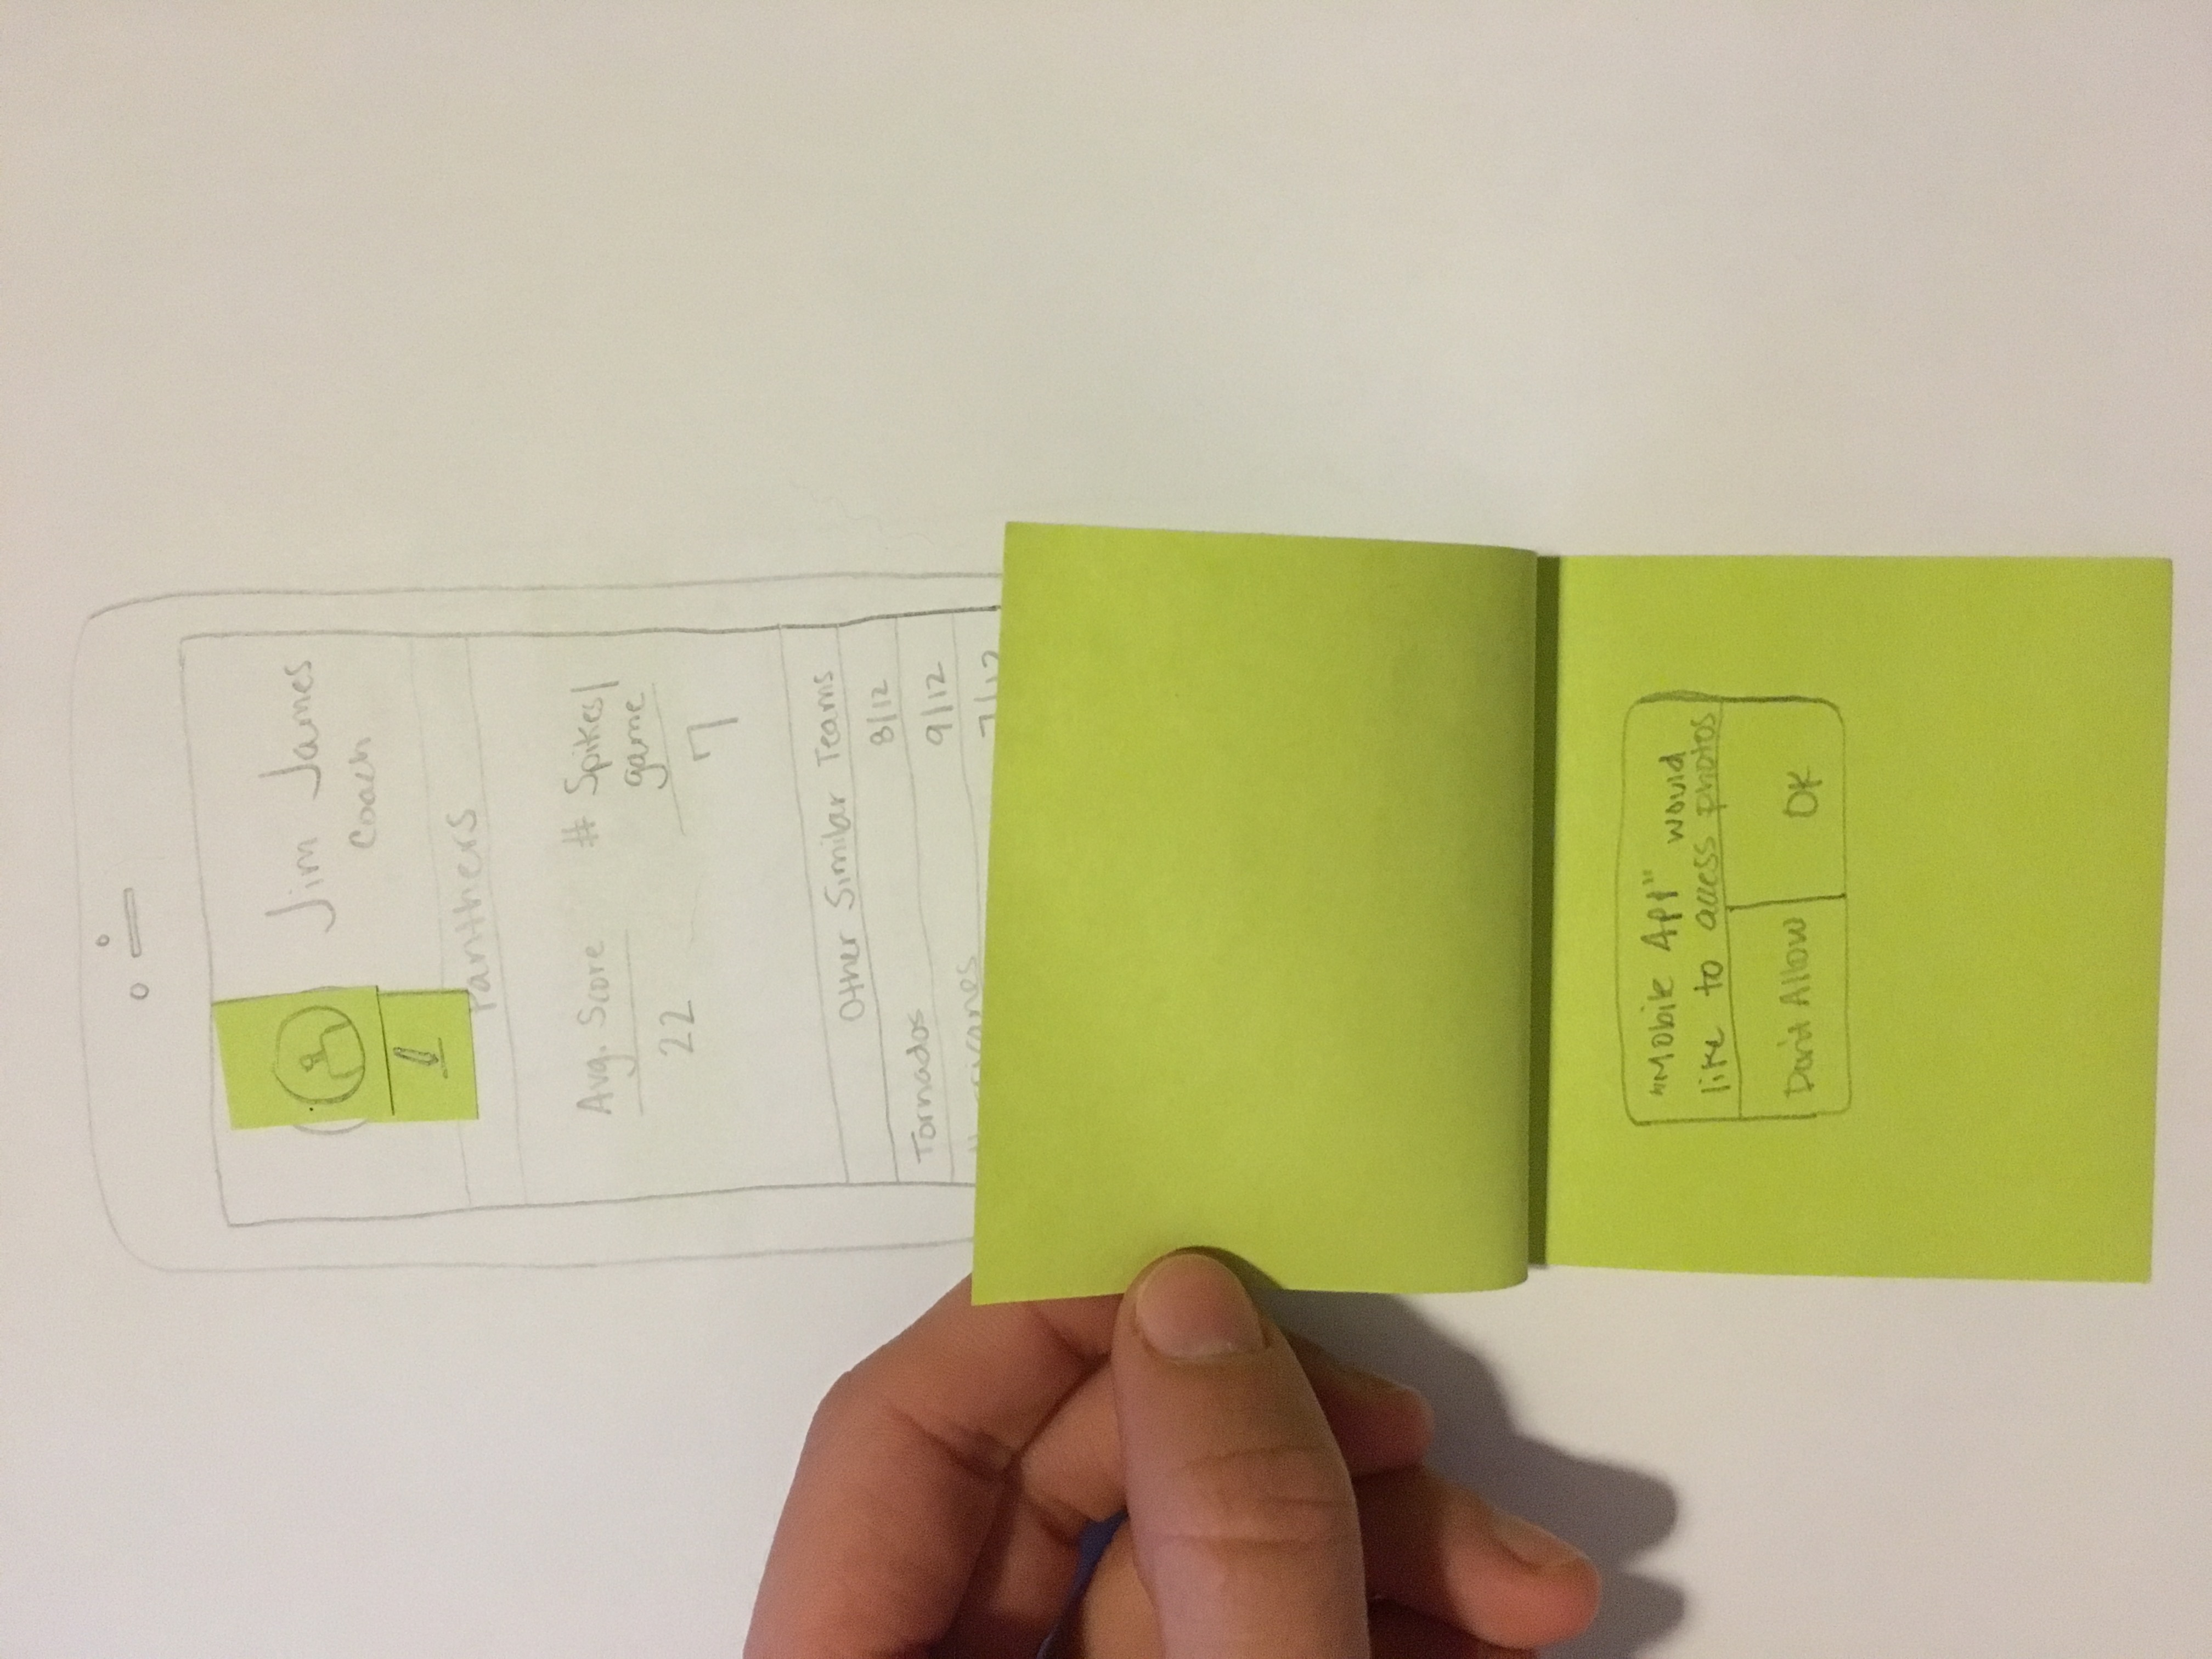 Jim James
Coach
Panthers
Avg. Score
22
# Spikes/
game
7
Other Similar Teams
8/12
Tornados
9/12
Hurricanes
7/12
"Mobile App" would
like to access photos
Don't Allow
OK